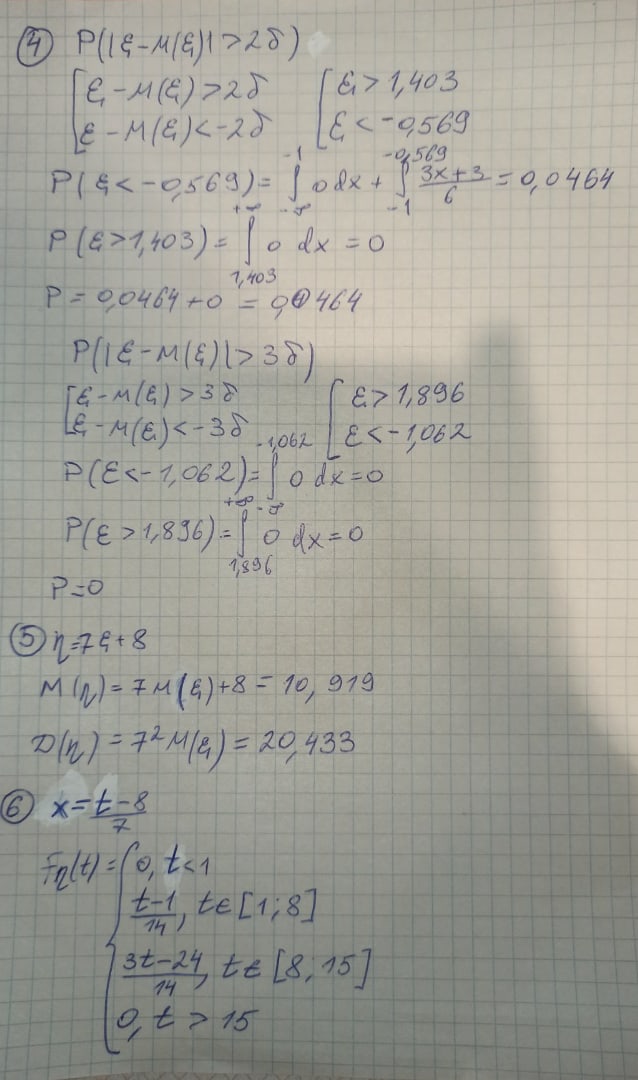 ④ P(|ξ-M(ξ)|>2σ)
[ξ-M(ξ)>2σ [ξ>1,403
ξ-M(ξ)<-2σ ξ<-0,569
P(ξ<-0,569)=∫_{-∞}^{-1} 0 dx + ∫_{-1}^{-0,569} (3x+3)/6 = 0,0464
P(ξ>1,403)=∫_{1,403}^{+∞} 0 dx = 0
P=0,0464+0=0,0464
P(|ξ-M(ξ)|>3σ)
[ξ-M(ξ)>3σ [ξ>1,896
ξ-M(ξ)<-3σ ξ<-1,062
P(ξ<-1,062)=∫_{-∞}^{-1,062} 0 dx=0
P(ξ>1,896)=∫_{1,896}^{+∞} 0 dx=0
P=0
⑤ η=7ξ+8
M(η)=7M(ξ)+8=10,919
D(η)=7²M(ξ)=20,433
⑥ x=(t-8)/7
Fη(t)={0, t<1
(t-1)/14, t∈[1;8]
(3t-24)/14, t∈[8;15]
0, t>15